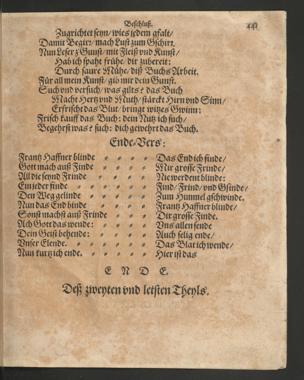 Beschluß.
441
Zugrichtet seyn/ wies jedem gfalt/
Damit Begir/ mach Lust zum Gschirr.
Nun Leser z Gunst/ mit Fleiß vnd Kunst/
Hab ich spaht frühe/ dir zubereit:
Durch saure Mühe/ diß Buchs Arbeit.
Für all mein Kunst/ gib mir dein Gunst.
Such vnd versuch/ was gilts e das Buch
Macht Hertz vnd Muth/ stärckt Hirn vnd Sinn/
Erfrischt das Blut/ bringt witzes Gwinn:
Frisch kauff das Buch: dem Nutz ich such/
Begehrst was e such: dich gewehrt das Buch.
Ende/Vers:
Frantz Haffner blinde Das End ich finde/
Gott mach auß Finde Mir grosse Freinde/
All die seynd Frinde Nie werdent blinde:
Ein jeder finde Find/ Frind/ vnd Gsinde/
Den Weg gelinde Zum Himmel gschwinde.
Nun das End binde Frantz Haffner blinde/
Sonst machst auß Frinde Dir grosse Finde.
Ach Gott das wende: Uns allen sende
Dein Geist behende: Auch selig ende/
Unser Elende. Das Blat ich wende/
Nun kurtz ich ende. Hier ist das
E N D E.
Deß zweyten vnd letsten Theyls.